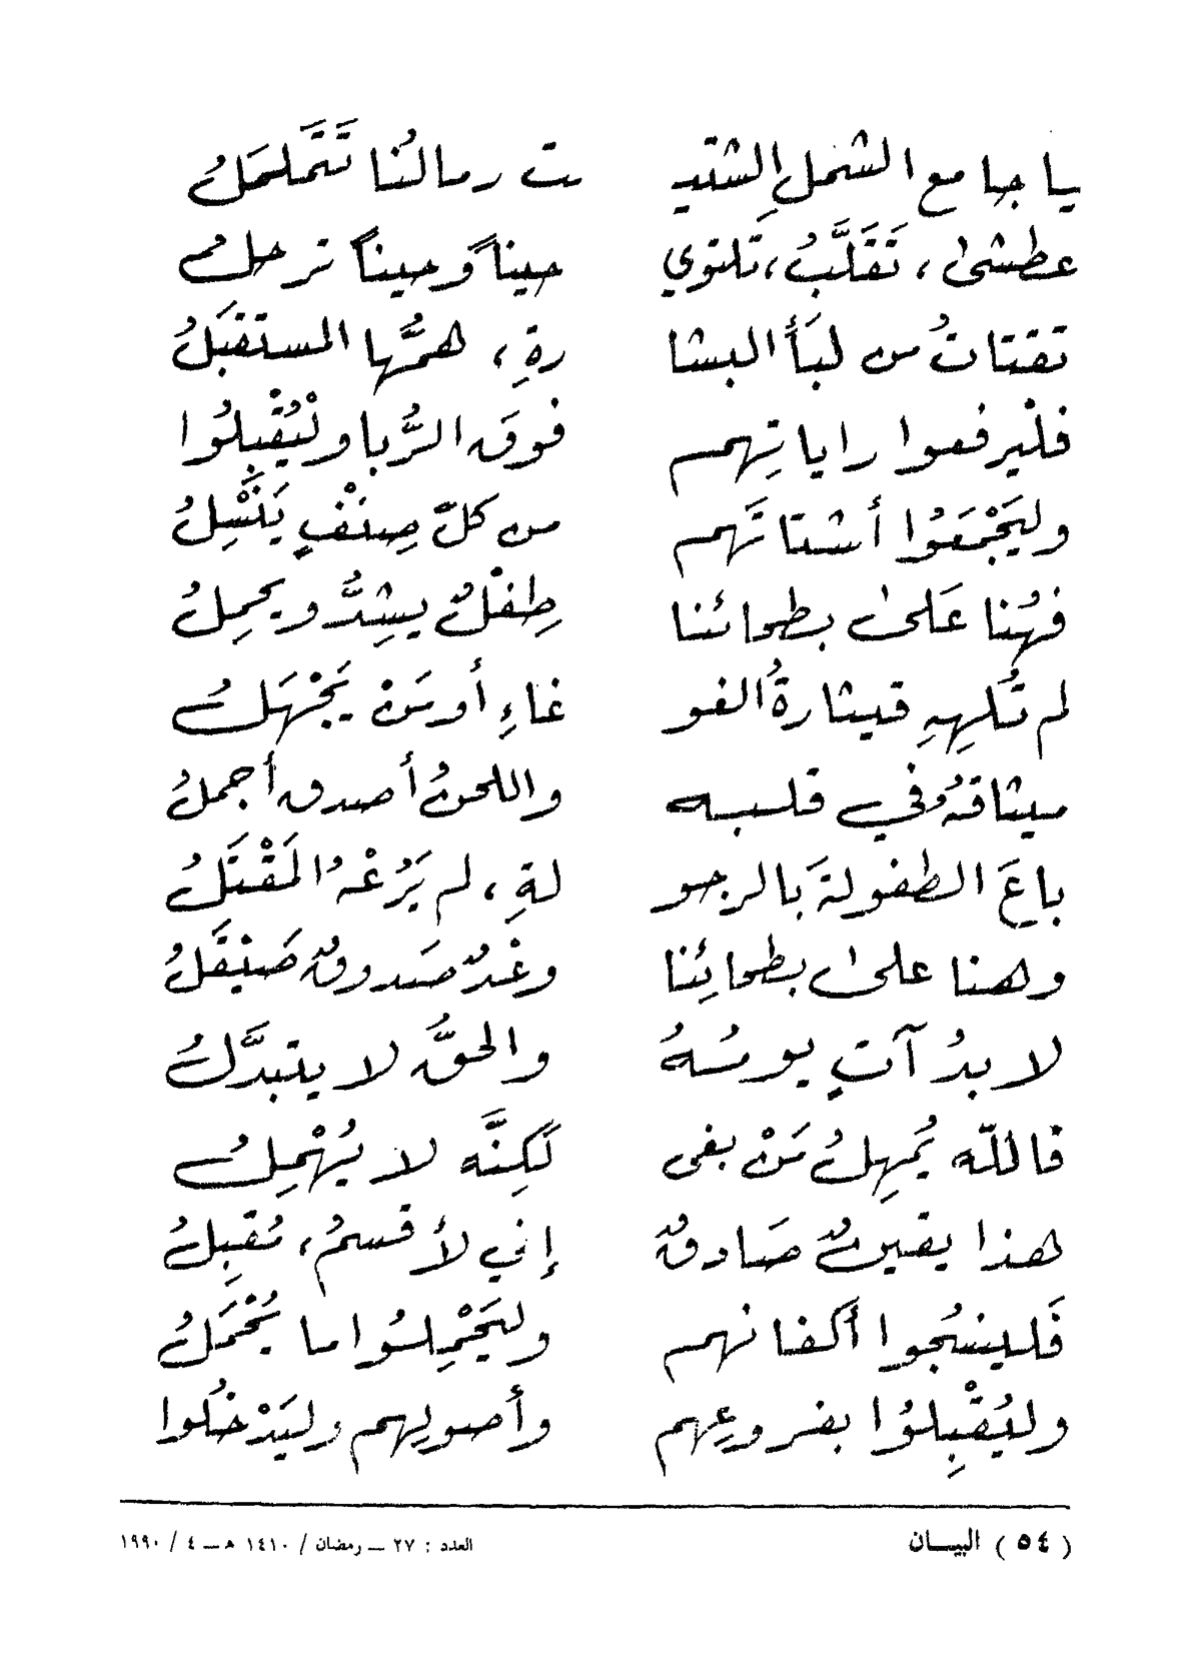 يا جامع الشملِ الشتيـ ـت رمالُنا تَتَململُ
عطشى ، تَقَلَّبُ ، تلتوي حيناً وحيناً ترحلُ
تقتاتُ من لبَأ البشا رةِ ، همُّها المستقبَلُ
فلْيرفعوا راياتِهم فوقَ الرُّبا ولْيُقْبِلُوا
وليَجْمَعَوُا أشتاتَهم من كلّ صِنْفٍ يَنْسِلُ
فهُنا عَلى بطحائنا طِفْلٌ يشِدُّ ويحمِلُ
لم تُلهِهِ قيثارةُ الغو غاءِ أو مَنْ يَجْهَلُ
ميثاقهُ في قلبه واللحنُ أصدق أجملُ
باعَ الطفولةَ بالرجو لةِ ، لم يَرُعْهُ المَقْتَلُ
وهنا على بطحائِنا وغدٌ صَدوقٌ صَيْقَلُ
لا بدُ آتٍ يومُهُ والحقُّ لا يتبدَّلُ
فاللّه يُمهِلُ مَنْ بغى لَكِنَّه لا يُهْمِلُ
هذا يقينٌ صَادقٌ إني لأقسمُ ، مُقبِلُ
فَلينسُجوا أكفانهم وليَحْمِلُوا ما يُحْمَلُ
وليُقْبِلوُا بفروعِهم وأصولِهم وليَدْخُلوا
( ٥٤ ) البيـــان العدد : ٢٧ ــ رمضان / ١٤١٠ هـ ــ ٤ / ١٩٩٠